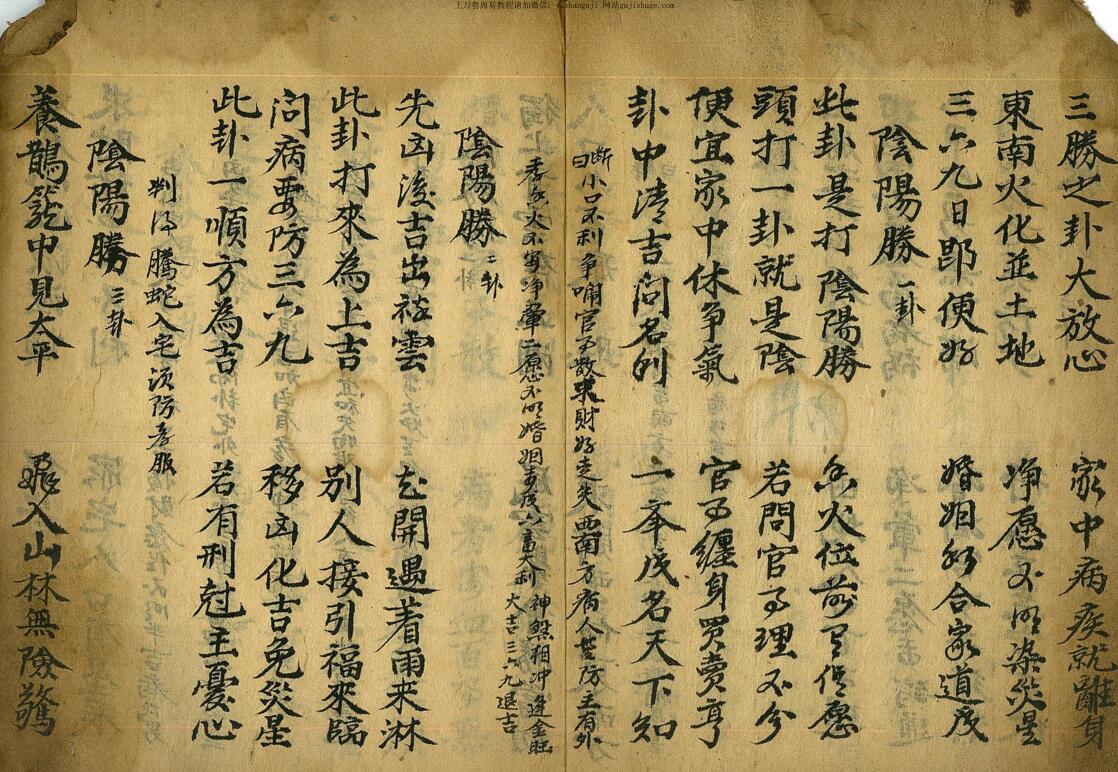 上万套周易教程请加微信：yishanguji 网站gujishuge.com
三勝之卦大放心 家中病疾就離身
東南火化並土地 净愿不明染災星
三六九日即便好 婚姻和合家道成
陰陽勝 一卦
此卦是打陰陽勝 香火位前有信愿
頭打一卦就是陰 若問官事理不分
便宜家中休争氣 官事纏身買賣亨
卦中清吉問名利 一本成名天下知
斷曰 小口不利争啼官事散求財好走失西南方病人無防主有外
香火不寧净葷二愿不明婚姻有成六畜大利 神煞相冲逢金旺大吉三六九退吉
陰陽勝 二卦
先凶後吉出祥雲 花開遇着雨来淋
此卦打來為上吉 別人接引福來臨
問病要防三六九 移凶化吉免災星
此卦一順方為吉 若有刑尅主憂心
判曰 騰蛇入宅須防孝服
陰陽勝 三卦
養鵲籠中見太平 飛入山林無險驚